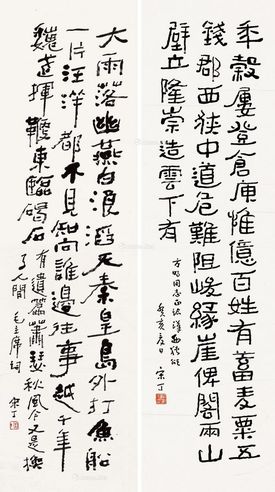 年穀屢登倉庾惟億百姓有蓄麦粟五
錢郡西狹中道危難阻峻緣崖俾閣兩山
壁立隆崇造雲下有
方明同志正
癸亥 宋丁
大雨落幽燕白浪滔天秦皇島外打魚船
一片汪洋都不見知向誰邊往事越千年
魏武揮鞭東臨碣石有遺篇蕭瑟秋風今又是換
了人間 毛主席詞 宋丁